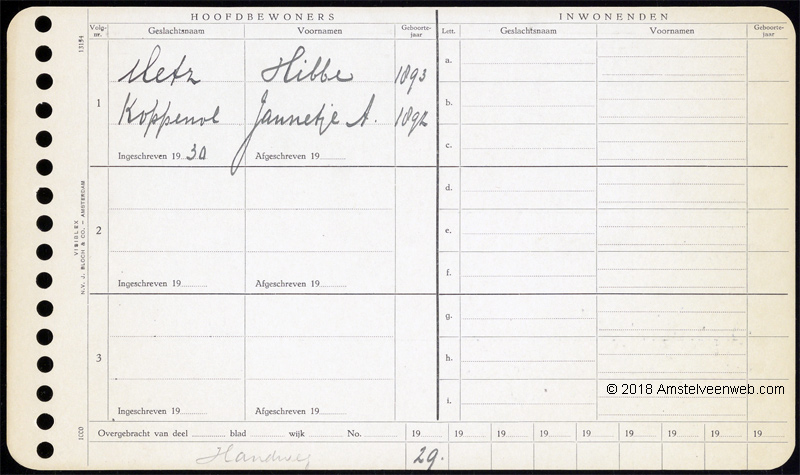 HOOFDBEWONERS
INWONENDEN
Volg-nr. Geslachtsnaam Voornamen Geboorte-jaar Lett. Geslachtsnaam Voornamen Geboorte-jaar
13154
Metz Hibbe 1893
1
Koppenol Jannetje A. 1892
Ingeschreven 19 30 Afgeschreven 19
a.
b.
c.
2
Ingeschreven 19 Afgeschreven 19
d.
e.
f.
3
Ingeschreven 19 Afgeschreven 19
g.
h.
i.
VISIDLEX
N.V. J. BLOCH & CO. - AMSTERDAM
© 2018 Amstelveenweb.com
Overgebracht van deel blad wijk No. 19 19 19 19 19 19 19 19 19
Handweg 29.